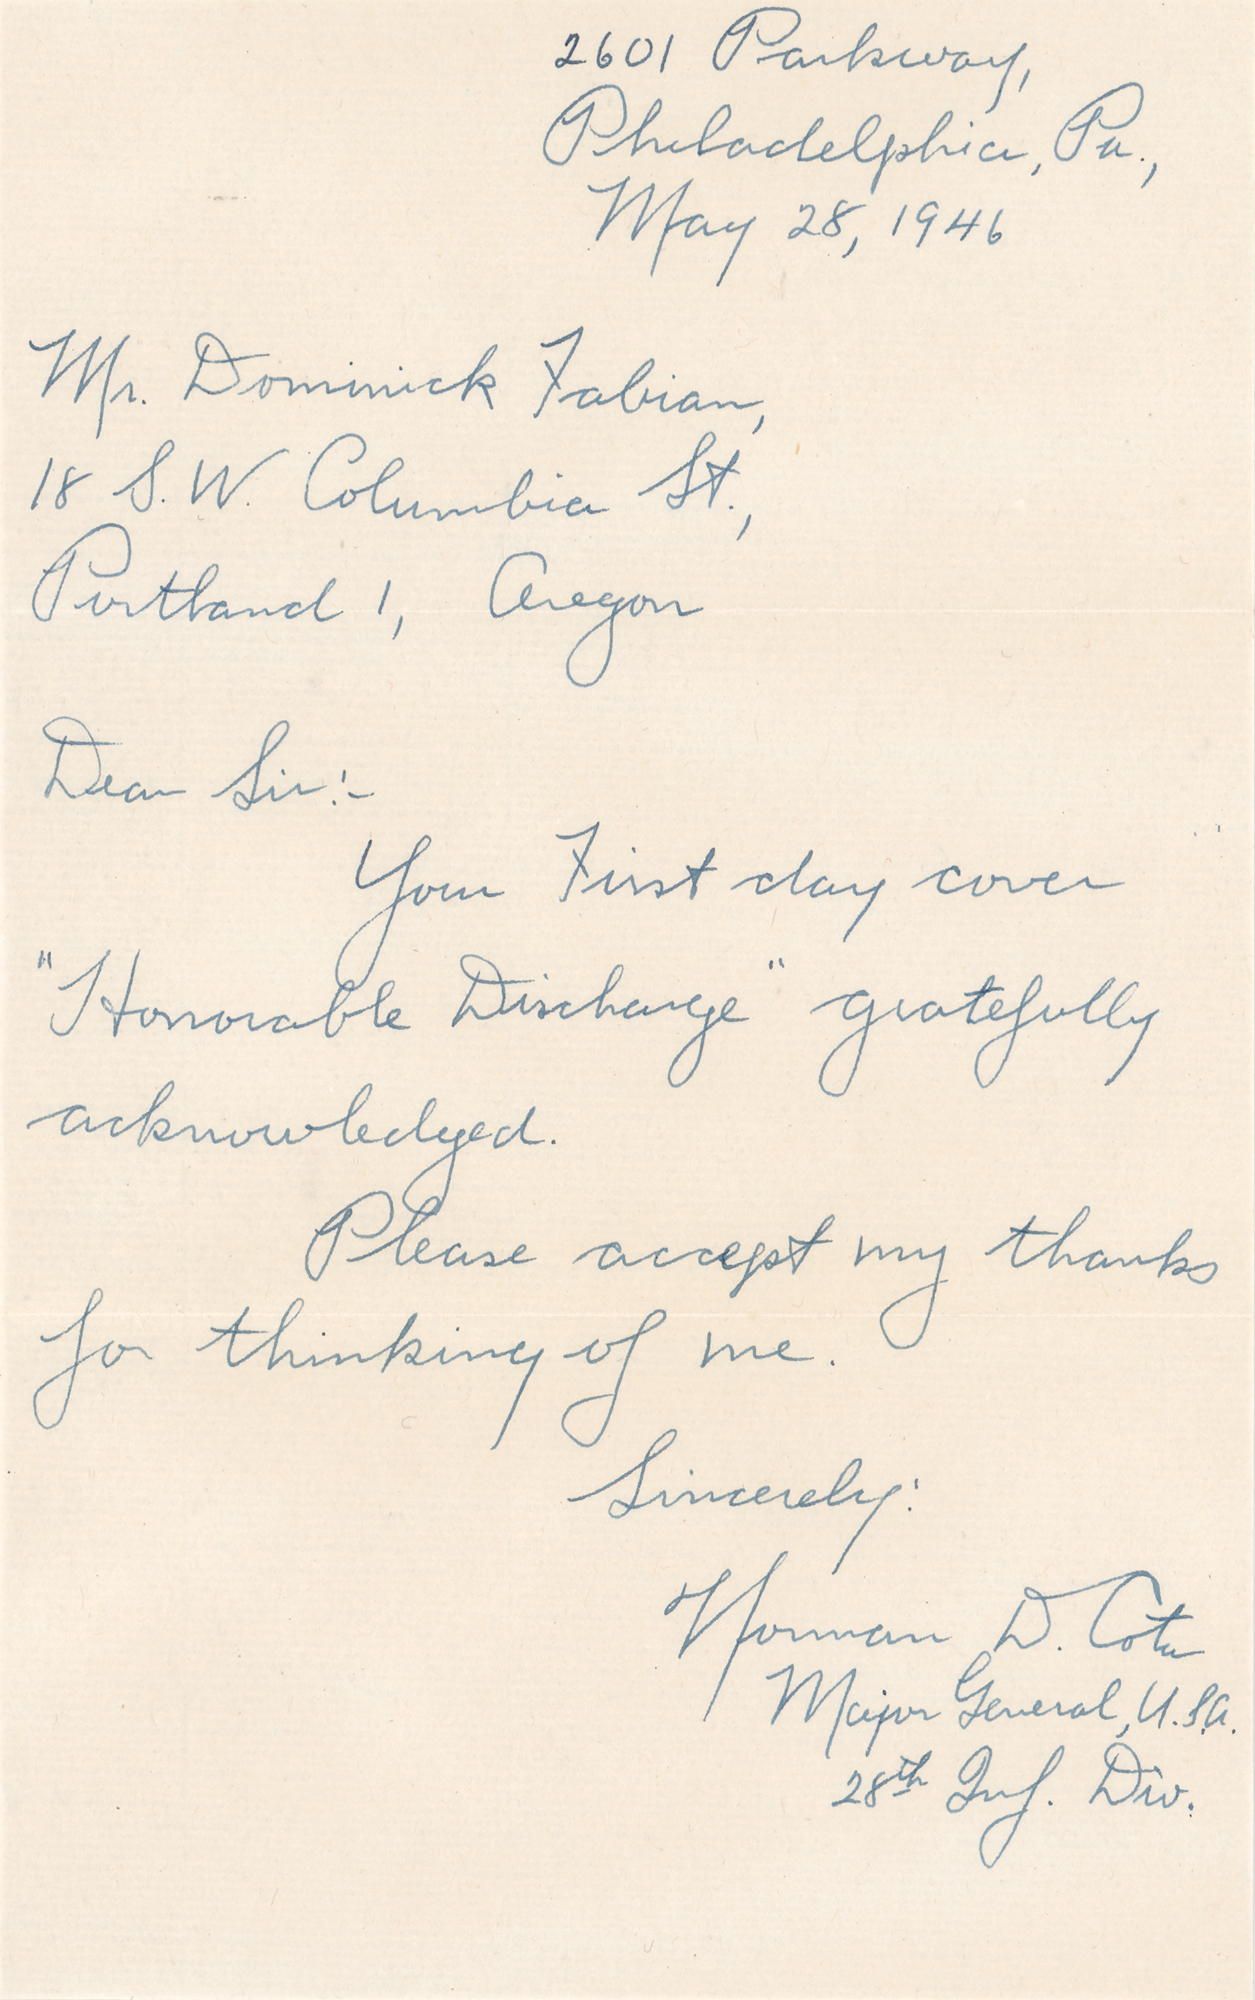 2601 Parkway,
Philadelphia, Pa.,
May 28, 1946
Mr. Dominick Fabian,
18 S.W. Columbia St.,
Portland 1, Oregon
Dear Sir:-
Your First day cover
"Honorable Discharge" gratefully
acknowledged.
Please accept my thanks
for thinking of me.
Sincerely:
Norman D. Cota
Major General, U.S.A.
28th Inf. Div.